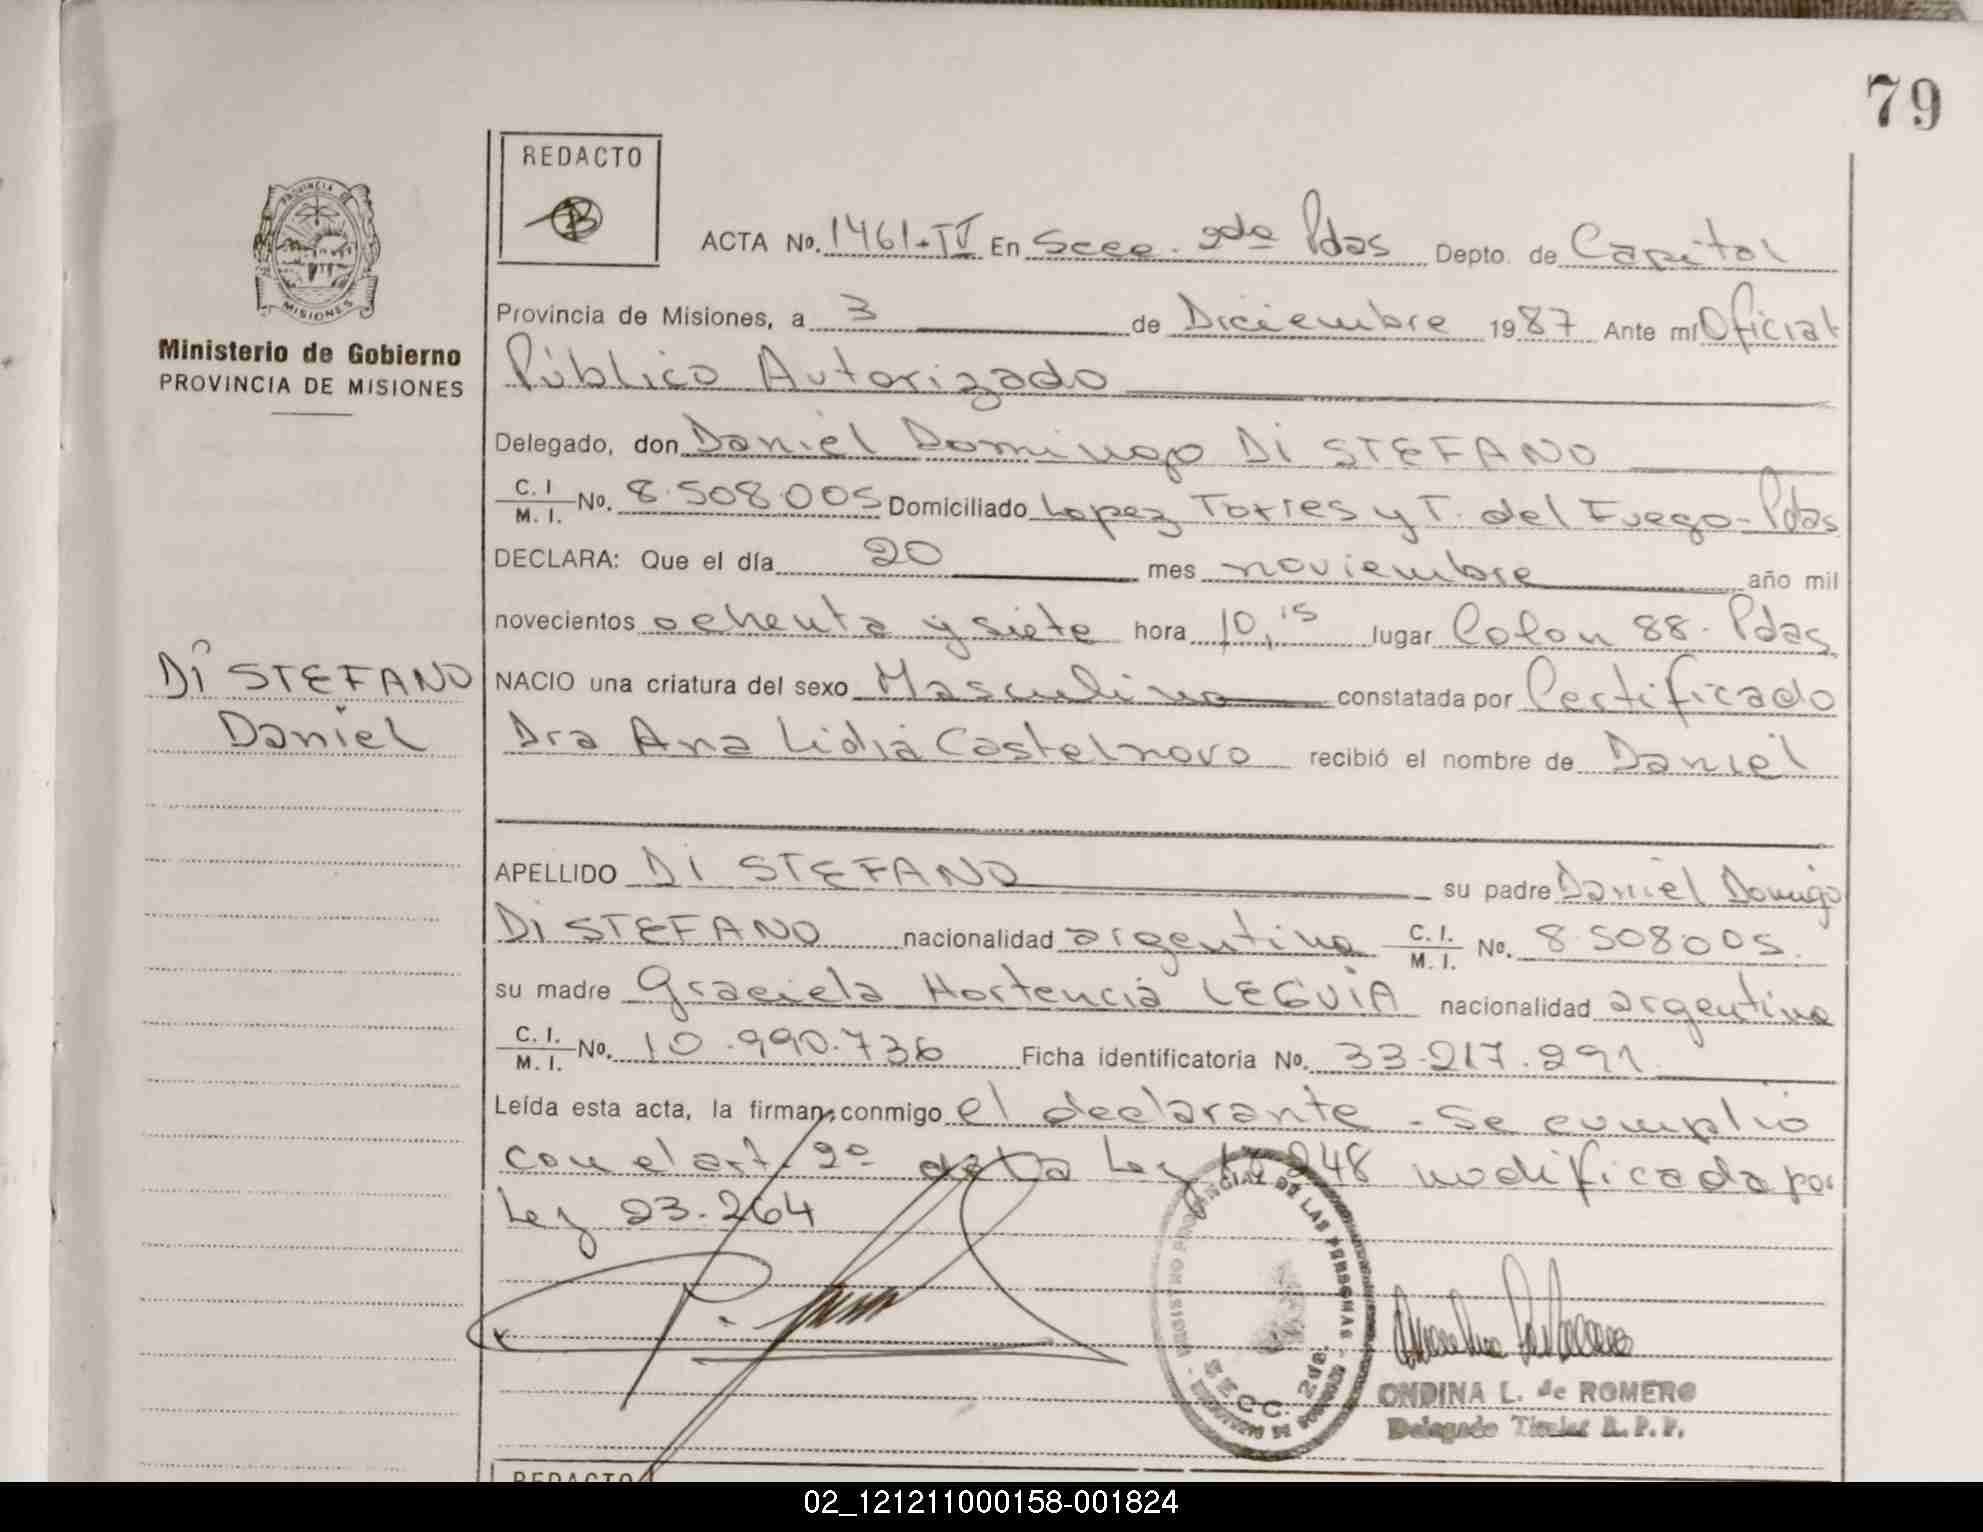 79
REDACTO
PROVINCIA
MISIONES
Ministerio de Gobierno
PROVINCIA DE MISIONES
ACTA No. 1461-IV En Secc. 2da Pdas Depto. de Capital
Provincia de Misiones, a 3 de Diciembre 1987 Ante mi Oficial
Público Autorizado
Delegado, don Daniel Domingo Di STEFANO
C. I. M. I. No. 8.508.005 Domiciliado Lopez Torres y T. del Fuego-Pdas
DECLARA: Que el día 20 mes noviembre año mil
novecientos ochenta y siete hora 10,15 lugar Colon 88. Pdas.
Di STEFANO
Daniel
NACIO una criatura del sexo Masculino constatada por Certificado
Dra Ana Lidia Castelnovo recibió el nombre de Daniel
APELLIDO Di STEFANO su padre Daniel Domigo
Di STEFANO nacionalidad argentina C. I. M. I. No. 8.508005.
su madre Graciela Hortencia LEGUIA nacionalidad argentina
C. I. M. I. No. 10.990.736 Ficha identificatoria No. 33.217.291
Leída esta acta, la firman conmigo el declarante - Se cumplio
con el art. 2º de la Ley 248 modificada por
Ley 23.264
REGISTRO PROVINCIAL DE LAS PERSONAS
SECC. 2da.
ONDINA L. de ROMERO
Delegado Titular R. P. P.
REDACTO
02_121211000158-001824